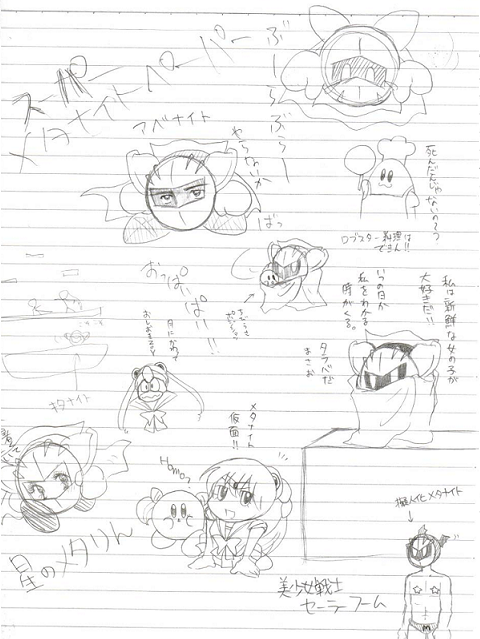 スーパー
メタナイトペーパー
ぶーらぶらー
アベナイト
やらないか
ばっ
死んだんじゃないの～?
ロブスター料理は
でさん!!
私は新鮮な女の子が
大好きだ!!
いつの日か
私をわかる
時がくる。
おっぱいぱい!!
月にかわって
おしおきよ
キタナイト
メタナイト
仮面!!
Homo?
擬人化メタナイト
星のメタりん
美少女戦士
セーラーフーム
M